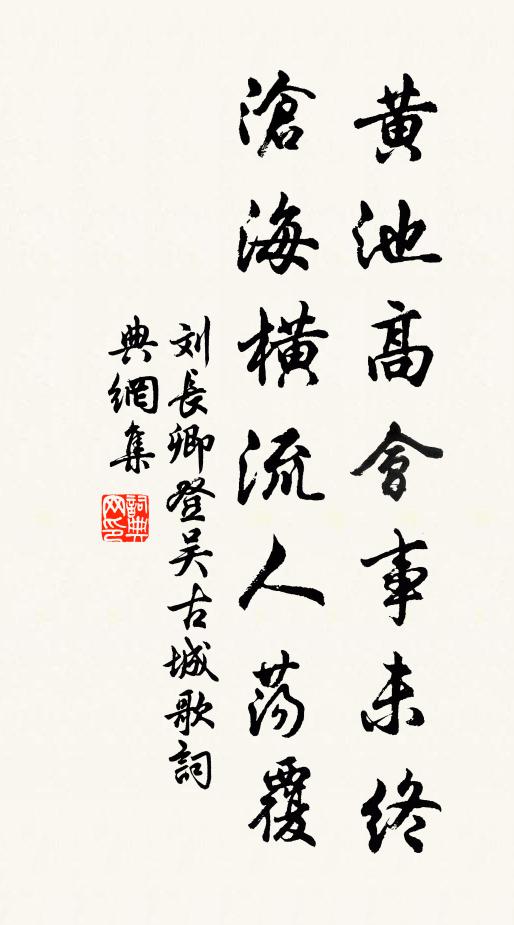 黄池高會事未終
滄海橫流人蕩覆
刘長卿登吴古城歌詞
典網集
詞典網印